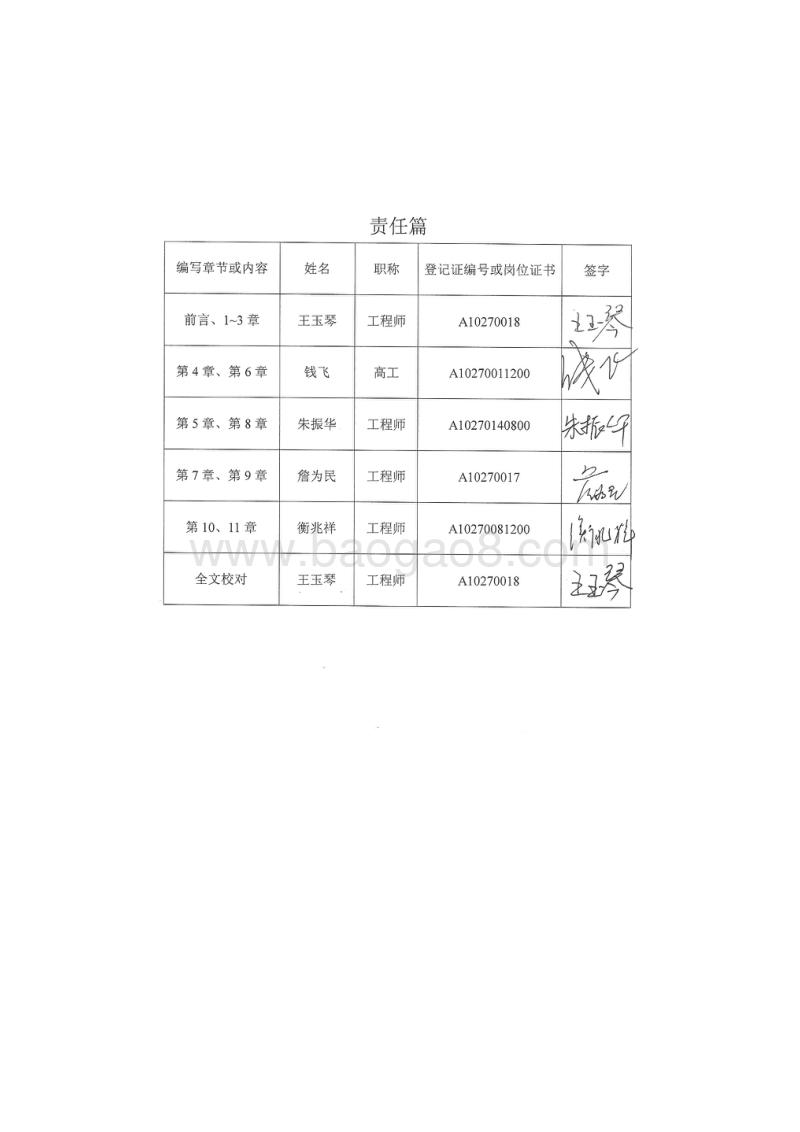 责任篇
编写章节或内容 姓名 职称 登记证编号或岗位证书 签字
前言、1~3 章 王玉琴 工程师 A10270018 王玉琴
第 4 章、第 6 章 钱飞 高工 A10270011200 钱飞
第 5 章、第 8 章 朱振华 工程师 A10270140800 朱振华
第 7 章、第 9 章 詹为民 工程师 A10270017
第 10、11 章 衡兆祥 工程师 A10270081200
www.baogao8.com
全文校对 王玉琴 工程师 A10270018 王玉琴